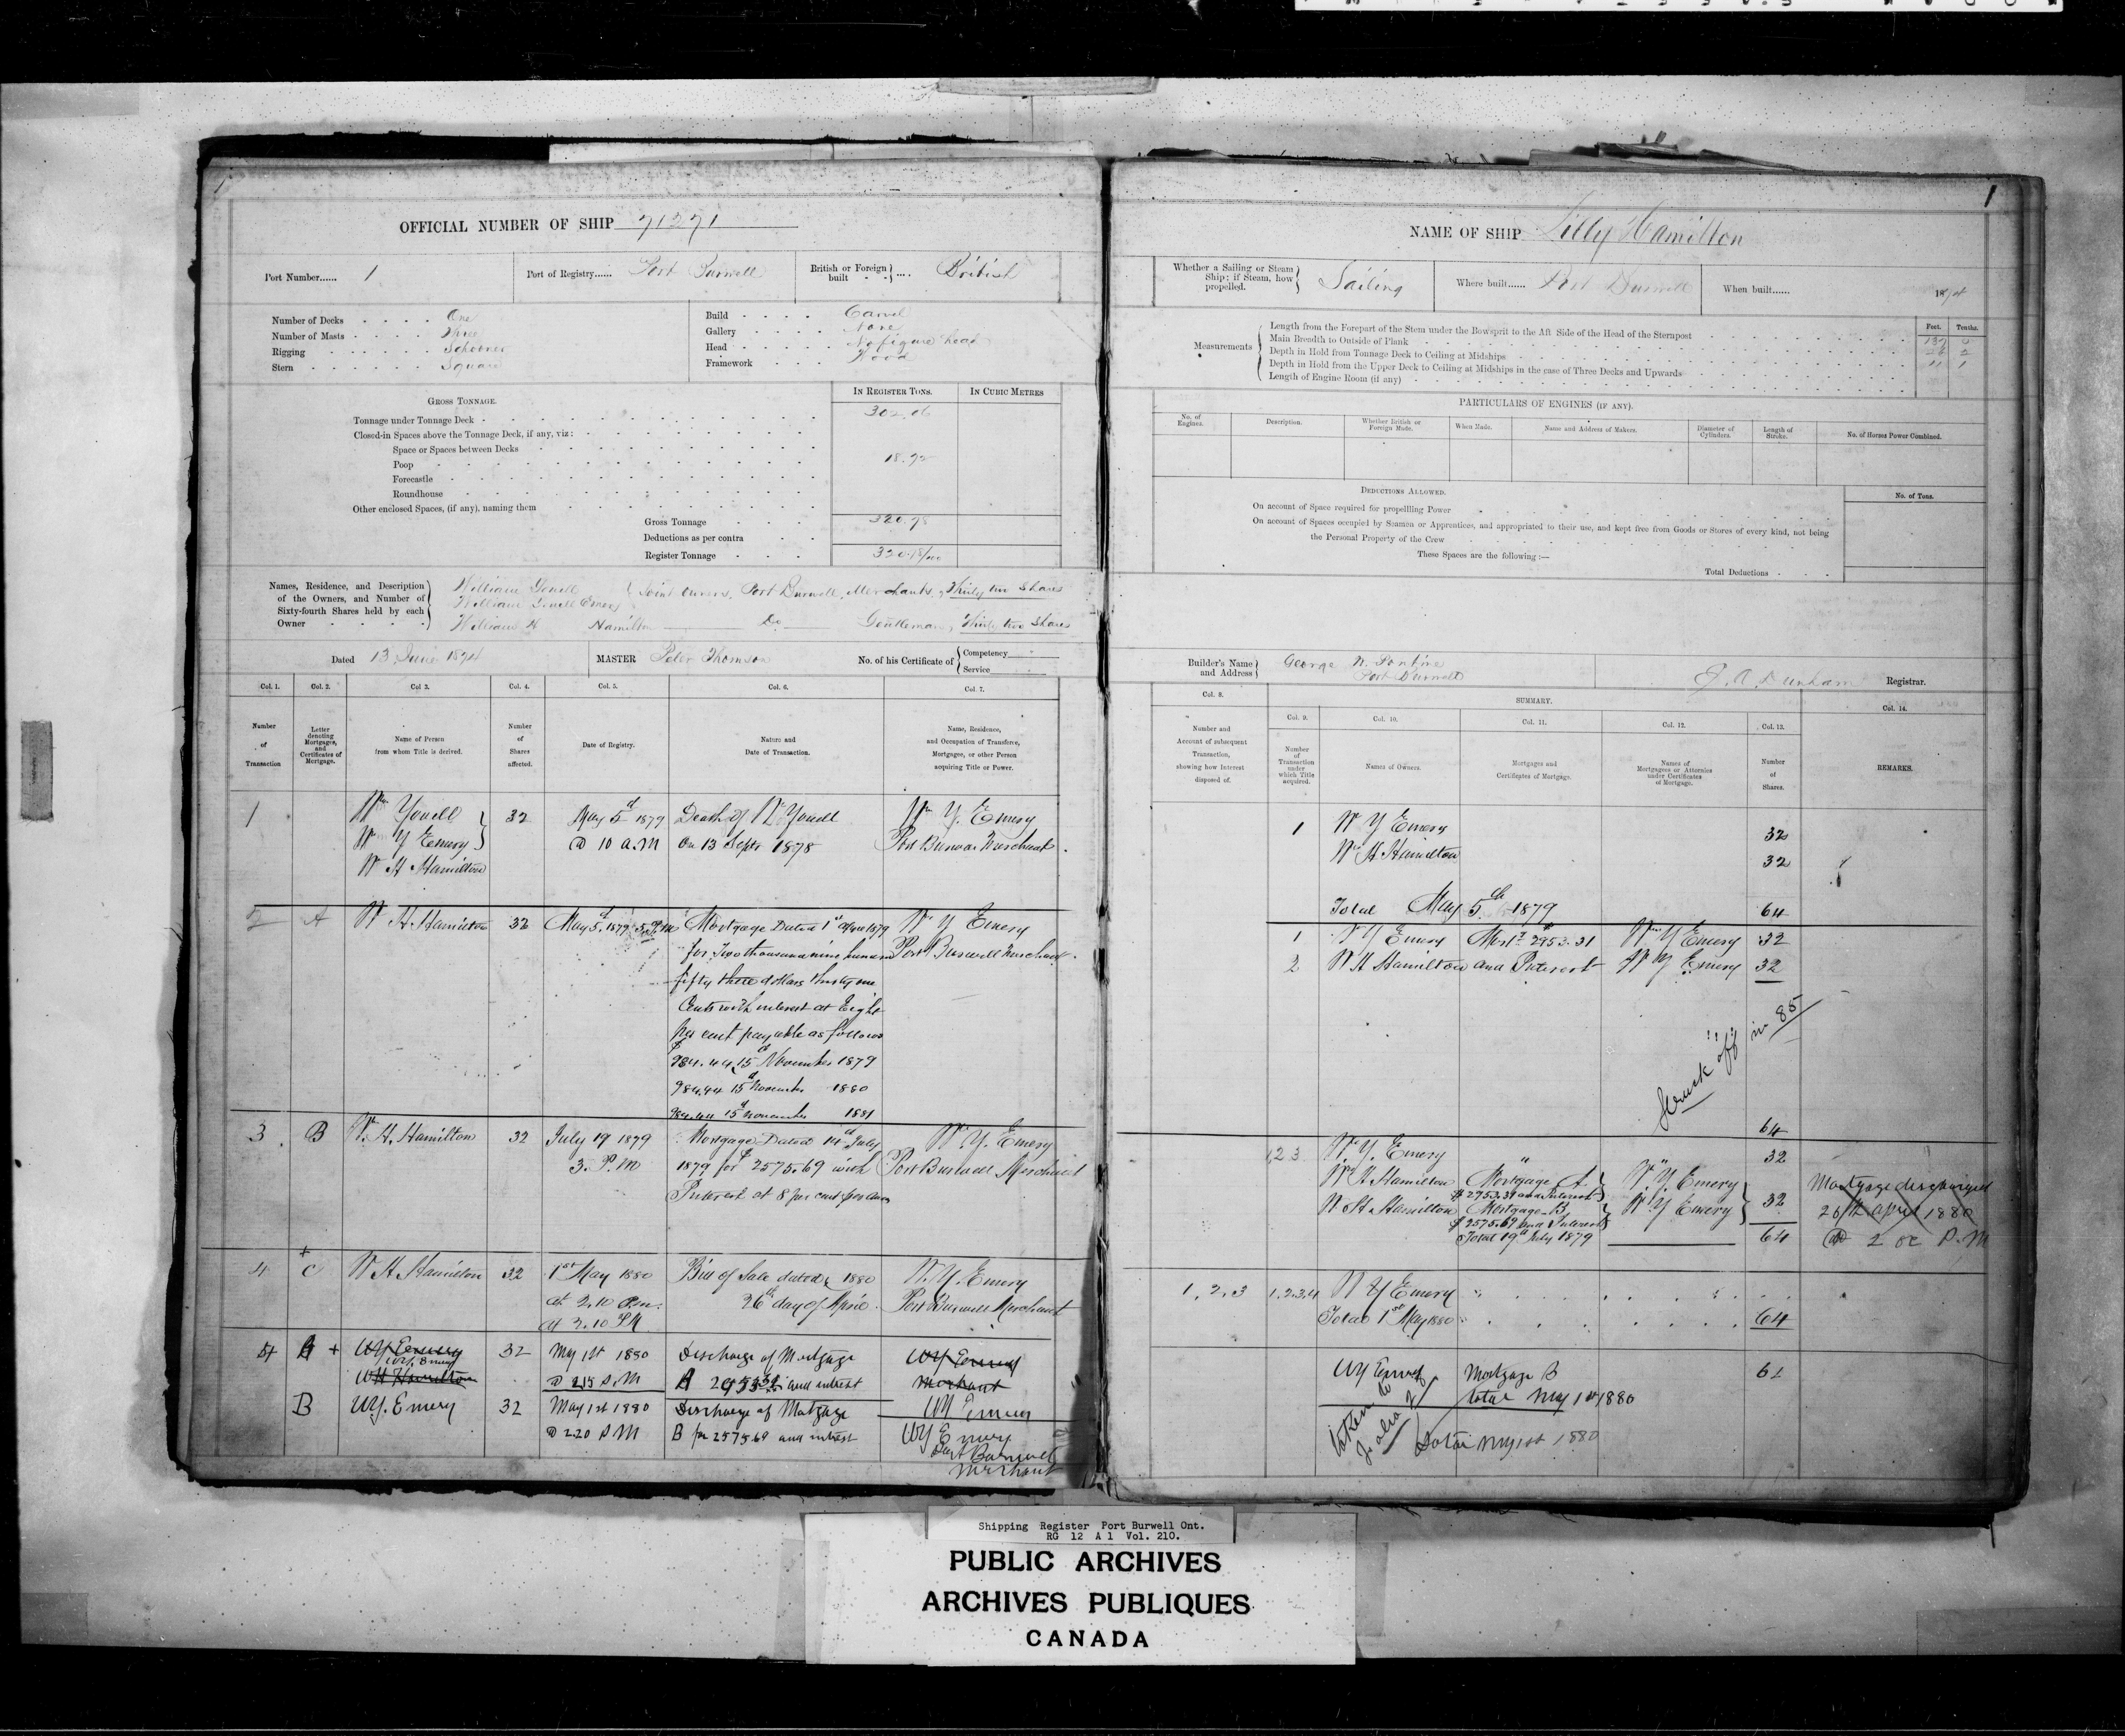 1
OFFICIAL NUMBER OF SHIP 71271
Port Number...... 1
Port of Registry...... Port Burwell
British or Foreign built .... British
Number of Decks One
Number of Masts Three
Rigging Schooner
Stern Square
Build Carvel
Gallery None
Head No figure head
Framework Wood
GROSS TONNAGE.
IN REGISTER TONS.
IN CUBIC METRES
Tonnage under Tonnage Deck 302.06
Closed-in Spaces above the Tonnage Deck, if any, viz:
Space or Spaces between Decks
Poop 18.92
Forecastle
Roundhouse
Other enclosed Spaces, (if any), naming them
Gross Tonnage 320.98
Deductions as per contra
Register Tonnage 320.98/100
Names, Residence, and Description of the Owners, and Number of Sixty-fourth Shares held by each Owner
William Youell
William Youell Emery
Joint Owners, Port Burwell, Merchants, Thirty two Shares
William H Hamilton Do Gentleman, Thirty two Shares
Dated 13 June 1874
MASTER Peter Thomson
No. of his Certificate of Competency Service
Col. 1. Col. 2. Col 3. Col. 4. Col. 5. Col. 6. Col. 7.
Number of Transaction
Letter denoting Mortgages, and Certificates of Mortgage.
Name of Person from whom Title is derived.
Number of Shares affected.
Date of Registry.
Nature and Date of Transaction.
Name, Residence, and Occupation of Transferee, Mortgagee, or other Person acquiring Title or Power.
1 Wm Youell 32 May 5th 1879 Death of Wm Youell Wm Y. Emery
Wm Y Emery @ 10 A.M On 13 Septr 1878 Port Burwell Merchant.
W H Hamilton
2 A W H Hamilton 32 May 5th 1879 Mortgage Dated 1st 1879 Wm Y Emery
for Two thousand nine hundred Port Burwell Merchant.
fifty three dollars thirty one
Cents with interest at Eight
per cent payable as follows
$984.44 15th November 1879
984.44 15th November 1880
984.44 15th November 1881
3 B W. H. Hamilton 32 July 19 1879 Mortgage Dated 14th July Wm Y. Emery
3. P.M 1879 for $2575.69 with Port Burwell Merchant
Interest at 8 per cent per Annum
4 + C W H Hamilton 32 1st May 1880 Bill of Sale dated 1880 W. Y. Emery
at 2.10 P.m. 26th day of April. Port Burwell Merchant
at 2.10 P.M
4 A + WY Emery 32 May 1st 1880 Discharge of Mortgage WY Emery
W.Y. Emery
WH Hamilton @ 2.15 P.M A 2953.31 and interest Merchant
WY Emery
B WY. Emery 32 May 1st 1880 Discharge of Mortgage
@ 2.20 P M B for 2575.69 and interest WY Emery
Port Burwell
Merchant
1
NAME OF SHIP Lilly Hamilton
Whether a Sailing or Steam Ship; if Steam, how propelled. Sailing
Where built...... Port Burwell
When built...... 1874
Measurements
Feet. Tenths.
Length from the Forepart of the Stem under the Bowsprit to the Aft Side of the Head of the Sternpost 137 0
Main Breadth to Outside of Plank 26 2
Depth in Hold from Tonnage Deck to Ceiling at Midships 11 1
Depth in Hold from the Upper Deck to Ceiling at Midships in the case of Three Decks and Upwards
Length of Engine Room (if any)
PARTICULARS OF ENGINES (IF ANY).
No. of Engines.
Description.
Whether British or Foreign Made.
When Made.
Name and Address of Makers.
Diameter of Cylinders.
Length of Stroke.
No. of Horses Power Combined.
DEDUCTIONS ALLOWED.
No. of Tons.
On account of Space required for propelling Power
On account of Spaces occupied by Seamen or Apprentices, and appropriated to their use, and kept free from Goods or Stores of every kind, not being
the Personal Property of the Crew
These Spaces are the following:—
Total Deductions
Builder's Name and Address George N.
Port Burwell
Dunham Registrar.
Col. 8.
SUMMARY.
Col. 14.
Col. 9. Col. 10. Col. 11. Col. 12. Col. 13.
Number and Account of subsequent Transaction, showing how Interest disposed of.
Number of Transaction under which Title acquired.
Names of Owners.
Mortgages and Certificates of Mortgage.
Names of Mortgagees or Attornies under Certificates of Mortgage.
Number of Shares.
REMARKS.
1 W Y Emery 32
Wm H Hamilton 32
Total May 5th 1879 64
1 W Y Emery Mort 2953.31 Wm Y Emery 32
2 W H Hamilton and Interest W Y Emery 32
Struck off in 85
64
1,2 3 W. Y. Emery " " 32
Wm H Hamilton Mortgage A W. Y. Emery
$2953.31 and Interest
W H Hamilton Mortgage B W Y Emery 32
$2575.69 and Interest
Total 19th July 1879 64
Mortgage discharged
26th april 1880
@ 2 oc P.M
1,2.3 1,2.3,4 W Y Emery
Total 1st May 1880 64
WY Emery Mortgage B
total May 1st 1880
taken to folio 2
total May 1st 1880
Shipping Register Port Burwell Ont.
RG 12 A 1 Vol. 210.
PUBLIC ARCHIVES
ARCHIVES PUBLIQUES
CANADA